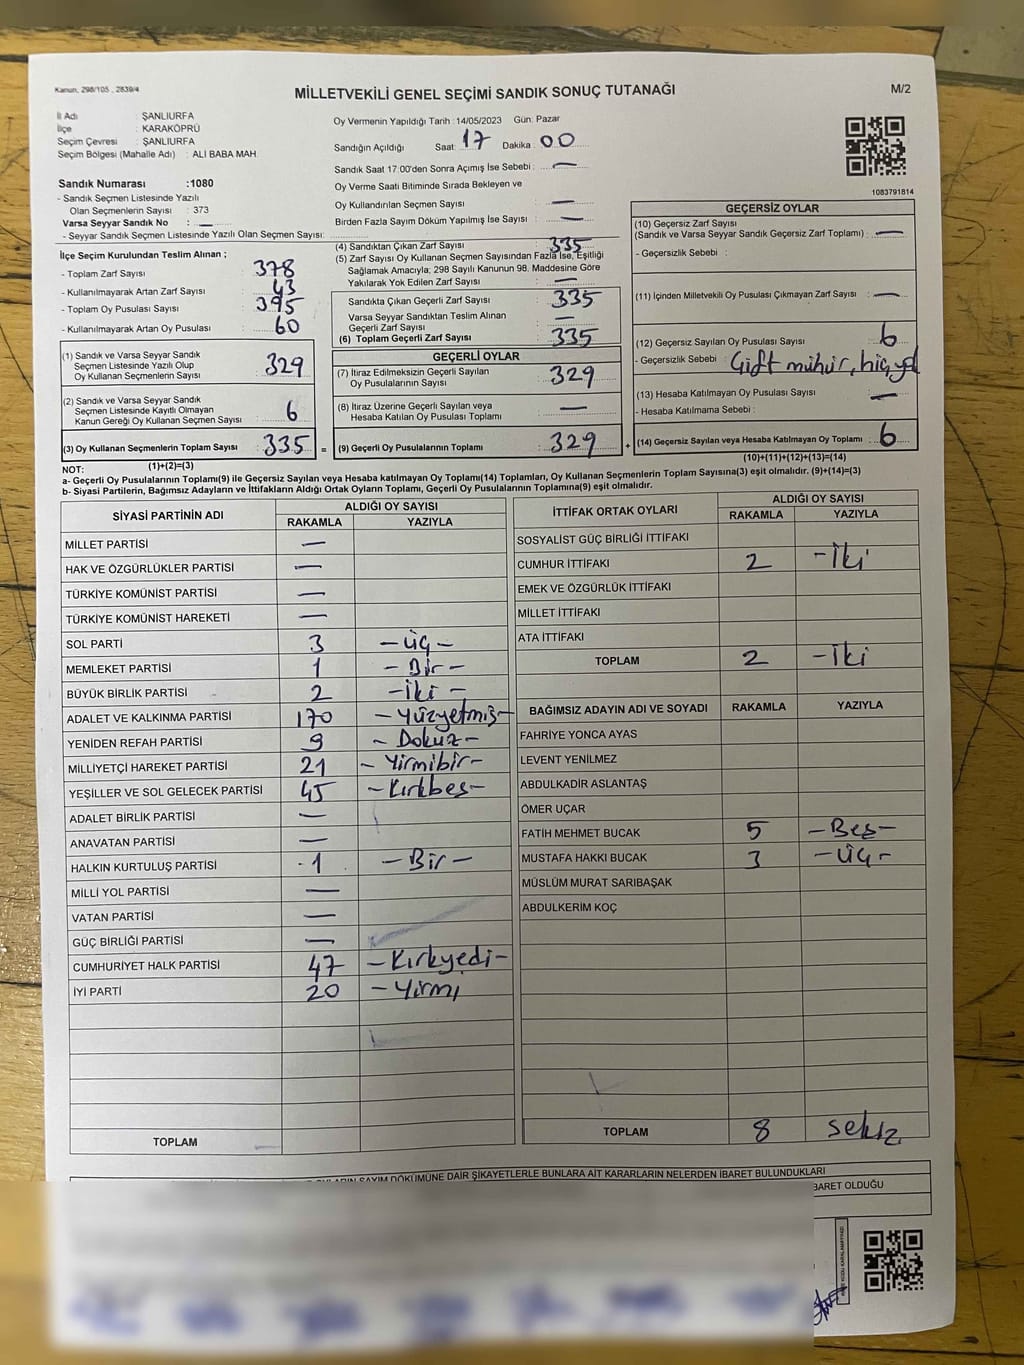 Kanun, 298/105 , 2839/4
MİLLETVEKİLİ GENEL SEÇİMİ SANDIK SONUÇ TUTANAĞI
M/2
İl Adı : ŞANLIURFA
İlçe : KARAKÖPRÜ
Seçim Çevresi : ŞANLIURFA
Seçim Bölgesi (Mahalle Adı) : ALİ BABA MAH.
Sandık Numarası :1080
- Sandık Seçmen Listesinde Yazılı
Olan Seçmenlerin Sayısı : 373
Varsa Seyyar Sandık No : —
- Seyyar Sandık Seçmen Listesinde Yazılı Olan Seçmen Sayısı:
Oy Vermenin Yapıldığı Tarih :14/05/2023 Gün: Pazar
Sandığın Açıldığı Saat: 17 Dakika: 00
Sandık Saat 17:00'den Sonra Açımış İse Sebebi : —
Oy Verme Saati Bitiminde Sırada Bekleyen ve
Oy Kullandırılan Seçmen Sayısı —
Birden Fazla Sayım Döküm Yapılmış İse Sayısı —
1083791814
İlçe Seçim Kurulundan Teslim Alınan ;
- Toplam Zarf Sayısı : 378
- Kullanılmayarak Artan Zarf Sayısı : 43
- Toplam Oy Pusulası Sayısı : 395
- Kullanılmayarak Artan Oy Pusulası : 60
(1) Sandık ve Varsa Seyyar Sandık
Seçmen Listesinde Yazılı Olup
Oy Kullanan Seçmenlerin Sayısı : 329
(2) Sandık ve Varsa Seyyar Sandık
Seçmen Listesinde Kayıtlı Olmayan
Kanun Gereği Oy Kullanan Seçmen Sayısı : 6
(3) Oy Kullanan Seçmenlerin Toplam Sayısı : 335 =
(1)+(2)=(3)
(4) Sandıktan Çıkan Zarf Sayısı : 335
(5) Zarf Sayısı Oy Kullanan Seçmen Sayısından Fazla İse, Eşitliği
Sağlamak Amacıyla; 298 Sayılı Kanunun 98. Maddesine Göre
Yakılarak Yok Edilen Zarf Sayısı : —
Sandıkta Çıkan Geçerli Zarf Sayısı : 335
Varsa Seyyar Sandıktan Teslim Alınan
Geçerli Zarf Sayısı : —
(6) Toplam Geçerli Zarf Sayısı : 335
GEÇERLİ OYLAR
(7) İtiraz Edilmeksizin Geçerli Sayılan
Oy Pusulalarının Sayısı : 329
(8) İtiraz Üzerine Geçerli Sayılan veya
Hesaba Katılan Oy Pusulası Toplamı : —
(9) Geçerli Oy Pusulalarının Toplamı : 329 +
GEÇERSİZ OYLAR
(10) Geçersiz Zarf Sayısı
(Sandık ve Varsa Seyyar Sandık Geçersiz Zarf Toplamı) : —
- Geçersizlik Sebebi :
(11) İçinden Milletvekili Oy Pusulası Çıkmayan Zarf Sayısı : —
(12) Geçersiz Sayılan Oy Pusulası Sayısı : 6
- Geçersizlik Sebebi : Çift mühür, hiç yok
(13) Hesaba Katılmayan Oy Pusulası Sayısı : —
- Hesaba Katılmama Sebebi :
(14) Geçersiz Sayılan veya Hesaba Katılmayan Oy Toplamı : 6
(10)+(11)+(12)+(13)=(14)
NOT:
a- Geçerli Oy Pusulalarının Toplamı(9) ile Geçersiz Sayılan veya Hesaba katılmayan Oy Toplamı(14) Toplamları, Oy Kullanan Seçmenlerin Toplam Sayısına(3) eşit olmalıdır. (9)+(14)=(3)
b- Siyasi Partilerin, Bağımsız Adayların ve İttifakların Aldığı Ortak Oyların Toplamı, Geçerli Oy Pusulalarının Toplamına(9) eşit olmalıdır.
SİYASİ PARTİNİN ADI ALDIĞI OY SAYISI
RAKAMLA YAZIYLA
MİLLET PARTİSİ —
HAK VE ÖZGÜRLÜKLER PARTİSİ —
TÜRKİYE KOMÜNİST PARTİSİ —
TÜRKİYE KOMÜNİST HAREKETİ —
SOL PARTİ 3 -üç-
MEMLEKET PARTİSİ 1 -Bir-
BÜYÜK BİRLİK PARTİSİ 2 -iki-
ADALET VE KALKINMA PARTİSİ 170 -Yüzyetmiş-
YENİDEN REFAH PARTİSİ 9 -Dokuz-
MİLLİYETÇİ HAREKET PARTİSİ 21 -Yirmibir-
YEŞİLLER VE SOL GELECEK PARTİSİ 45 -Kırkbeş-
ADALET BİRLİK PARTİSİ —
ANAVATAN PARTİSİ —
HALKIN KURTULUŞ PARTİSİ 1 -Bir-
MİLLİ YOL PARTİSİ —
VATAN PARTİSİ —
GÜÇ BİRLİĞİ PARTİSİ —
CUMHURİYET HALK PARTİSİ 47 -Kırkyedi-
İYİ PARTİ 20 -Yirmi
TOPLAM
İTTİFAK ORTAK OYLARI ALDIĞI OY SAYISI
RAKAMLA YAZIYLA
SOSYALİST GÜÇ BİRLİĞİ İTTİFAKI
CUMHUR İTTİFAKI 2 -İki
EMEK VE ÖZGÜRLÜK İTTİFAKI
MİLLET İTTİFAKI
ATA İTTİFAKI
TOPLAM 2 -İki
BAĞIMSIZ ADAYIN ADI VE SOYADI RAKAMLA YAZIYLA
FAHRİYE YONCA AYAS
LEVENT YENİLMEZ
ABDULKADİR ASLANTAŞ
ÖMER UÇAR
FATİH MEHMET BUCAK 5 -Beş-
MUSTAFA HAKKI BUCAK 3 -Üç-
MÜSLÜM MURAT SARIBAŞAK
ABDULKERİM KOÇ
TOPLAM 8 sekiz
SAYIM DÖKÜMÜNE DAİR ŞİKAYETLERLE BUNLARA AİT KARARLARIN NELERDEN İBARET BULUNDUKLARI
BARET OLDUĞU